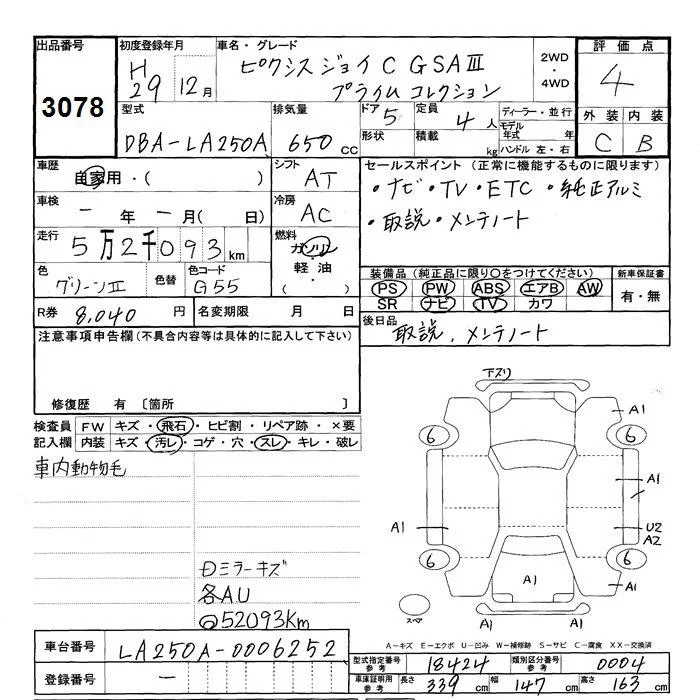 出品番号
3078
初度登録年月
H
29 12月
車名・グレード
ピクシス ジョイ C G SAⅢ
プライム コレクション
2WD
・
4WD
評価点
4
外装 内装
C B
型式
DBA-LA250A
排気量
650cc
ドア 5
形状
定員 4人
積載 kg
ディーラー・並行
モデル年式 年式
ハンドル 左・右
車歴
自家用・( )
シフト
AT
車検
ー年ー月( 日)
冷房
AC
走行
5万2千093km
燃料
ガソリン
・
軽油
・
色
グリーンⅡ
色替
色コード
G55
R券 8,040円
名変期限 月 日
セールスポイント(正常に機能するものに限ります)
・ナビ・TV・ETC・純正アルミ
・取説・メンテノート
装備品(純正品に限り○をつけてください)
PS PW ABS エアB AW
SR ナビ TV カワ
新車保証書
有・無
後日品
取説、メンテノート
注意事項申告欄(不具合内容等は具体的に記入して下さい)
修復歴 有 〔箇所 〕
検査員記入欄
FW キズ・飛石・ヒビ割・リペア跡・×要
内装 キズ・汚レ・コゲ・穴・スレ・キレ・破レ
車内動物毛
ミラーキズ
各AU
52093Km
下スリ
A1
6 6
A1
A1
U2
A2
6 6
A1
A1
スペア
A1 A1
A-キズ E-エクボ U-凹み W-補修跡 S-サビ C-腐食 XX-交換済
車台番号 LA250A-0006252
登録番号 ー
型式指定番号参考 18424
類別区分番号参考 0004
車庫証明用参考 長さ 339cm 幅 147cm 高さ 163cm